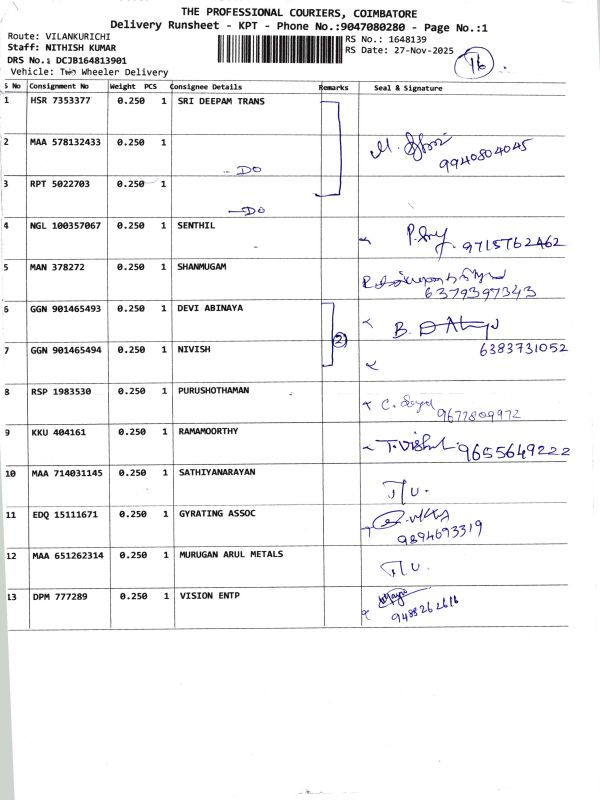 THE PROFESSIONAL COURIERS, COIMBATORE
Delivery Runsheet - KPT - Phone No.:9047080280 - Page No.:1
Route: VILANKURICHI
RS No.: 1648139
Staff: NITHISH KUMAR
RS Date: 27-Nov-2025
DRS No.: DCJB164813901
Vehicle: Two Wheeler Delivery
16
S No Consignment No Weight PCS Consignee Details Remarks Seal & Signature
1 HSR 7353377 0.250 1 SRI DEEPAM TRANS
2 MAA 578132433 0.250 1
9940804045
- DO
3 RPT 5022703 0.250 1
- DO
4 NGL 100357067 0.250 1 SENTHIL
9715762462
5 MAN 378272 0.250 1 SHANMUGAM
6379397343
6 GGN 901465493 0.250 1 DEVI ABINAYA
B.
2
7 GGN 901465494 0.250 1 NIVISH 6383731052
8 RSP 1983530 0.250 1 PURUSHOTHAMAN
9677809972
9 KKU 404161 0.250 1 RAMAMOORTHY
T. Vishnu. 9655649222
10 MAA 714031145 0.250 1 SATHIYANARAYAN
11 EDQ 15111671 0.250 1 GYRATING ASSOC
9894693319
12 MAA 651262314 0.250 1 MURUGAN ARUL METALS
13 DPM 777289 0.250 1 VISION ENTP
9488262616